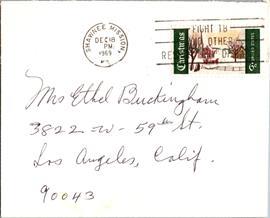 SHAWNEE MISSION,
DEC 18
PM
1969
FIGHT TB
AND OTHER
RE
Christmas
Mrs Ethel Buckingham
3822 - W - 59th St.
Los Angeles, Calif.
90043